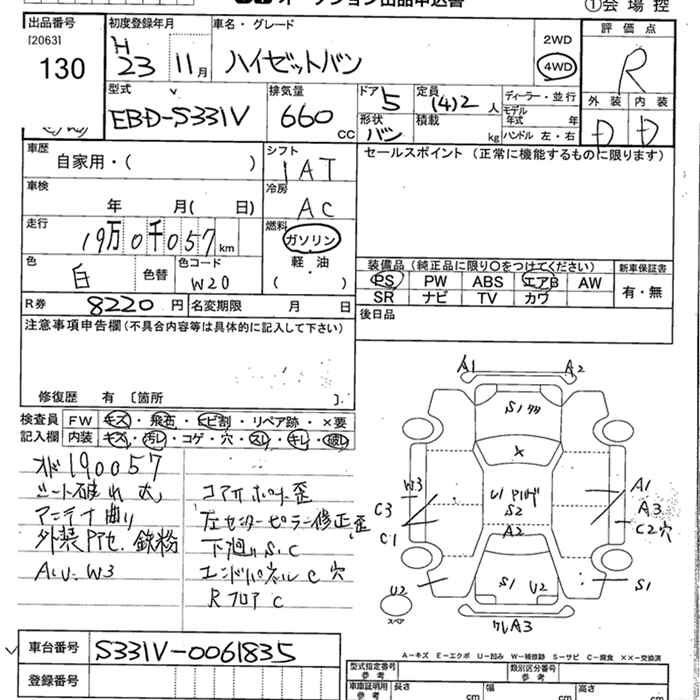 ①会場控
出品番号
[2063]
130
初度登録年月
H
23 11月
車名・グレード
ハイゼットバン
2WD
4WD
評価点
R
外装 内装
D D
型式
EBD-S331V
排気量
660
CC
ドア
5
形状
バン
定員
(4)2人
積載
kg
ディーラー・並行
モデル
年式 年
ハンドル 左・右
車歴
自家用・( )
シフト
IAT
セールスポイント (正常に機能するものに限ります)
車検
年 月( 日)
冷房
AC
走行
19万0千057km
燃料
ガソリン
軽・油
( )
色
白
色替
色コード
W20
装備品 (純正品に限り○をつけてください)
PS PW ABS エアB AW
SR ナビ TV カワ
新車保証書
有・無
R券 8220円 名変期限 月 日
後日品
注意事項申告欄 (不具合内容等は具体的に記入して下さい)
修復歴 有 [箇所 ].
検査員
記入欄
FW キズ・飛石・ヒビ割・リペア跡・×要
内装 キズ・汚レ・コゲ・穴・スレ・キレ・破レ
オド190057
シート破れ
アンテナ曲り
外装 鉄粉
W3
コアサポート歪
左センターピラー修正歪
下廻りS.C
エンドパネルC穴
RフロアC
A1
A2
S1
W3
C3
C1
S2
A2
A1
A3
C2穴
S1
U2
S1
U2
スペア
A3
A-キズ E-エクボ U-凹み W-補修跡 S-サビ C-腐食 ××-交換済
車台番号 S331V-0061835
登録番号
型式指定番号
参考
類別区分番号
参考
車庫証明用
参考
長さ cm
幅 cm
高さ cm